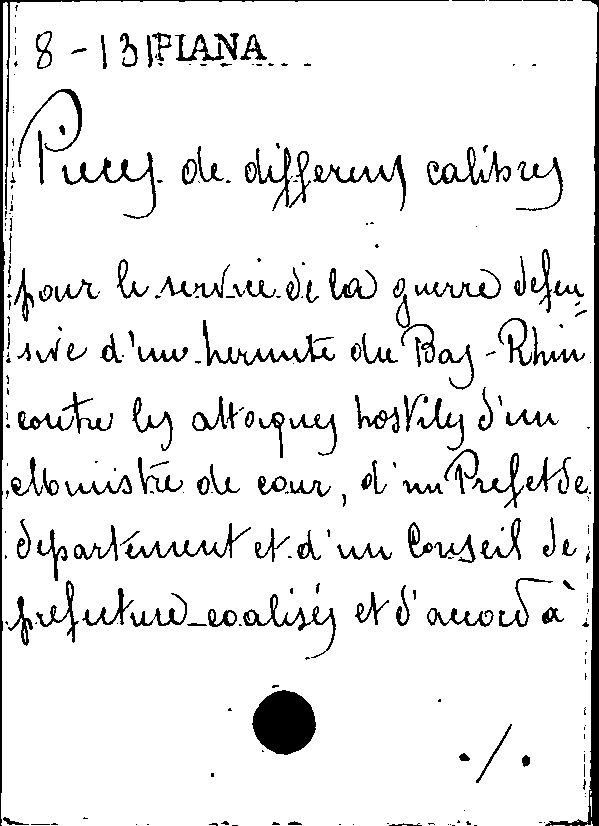 8-131 PIANA
Pieces de differens calibres
pour le service de la guerre defen=
sive d'un hermite du Bas-Rhin
contre les attaques hostiles d'un
Ministre de cour, d'un Prefet de
departement et d'un Conseil de
prefecture coalisés et d'accord à
./.